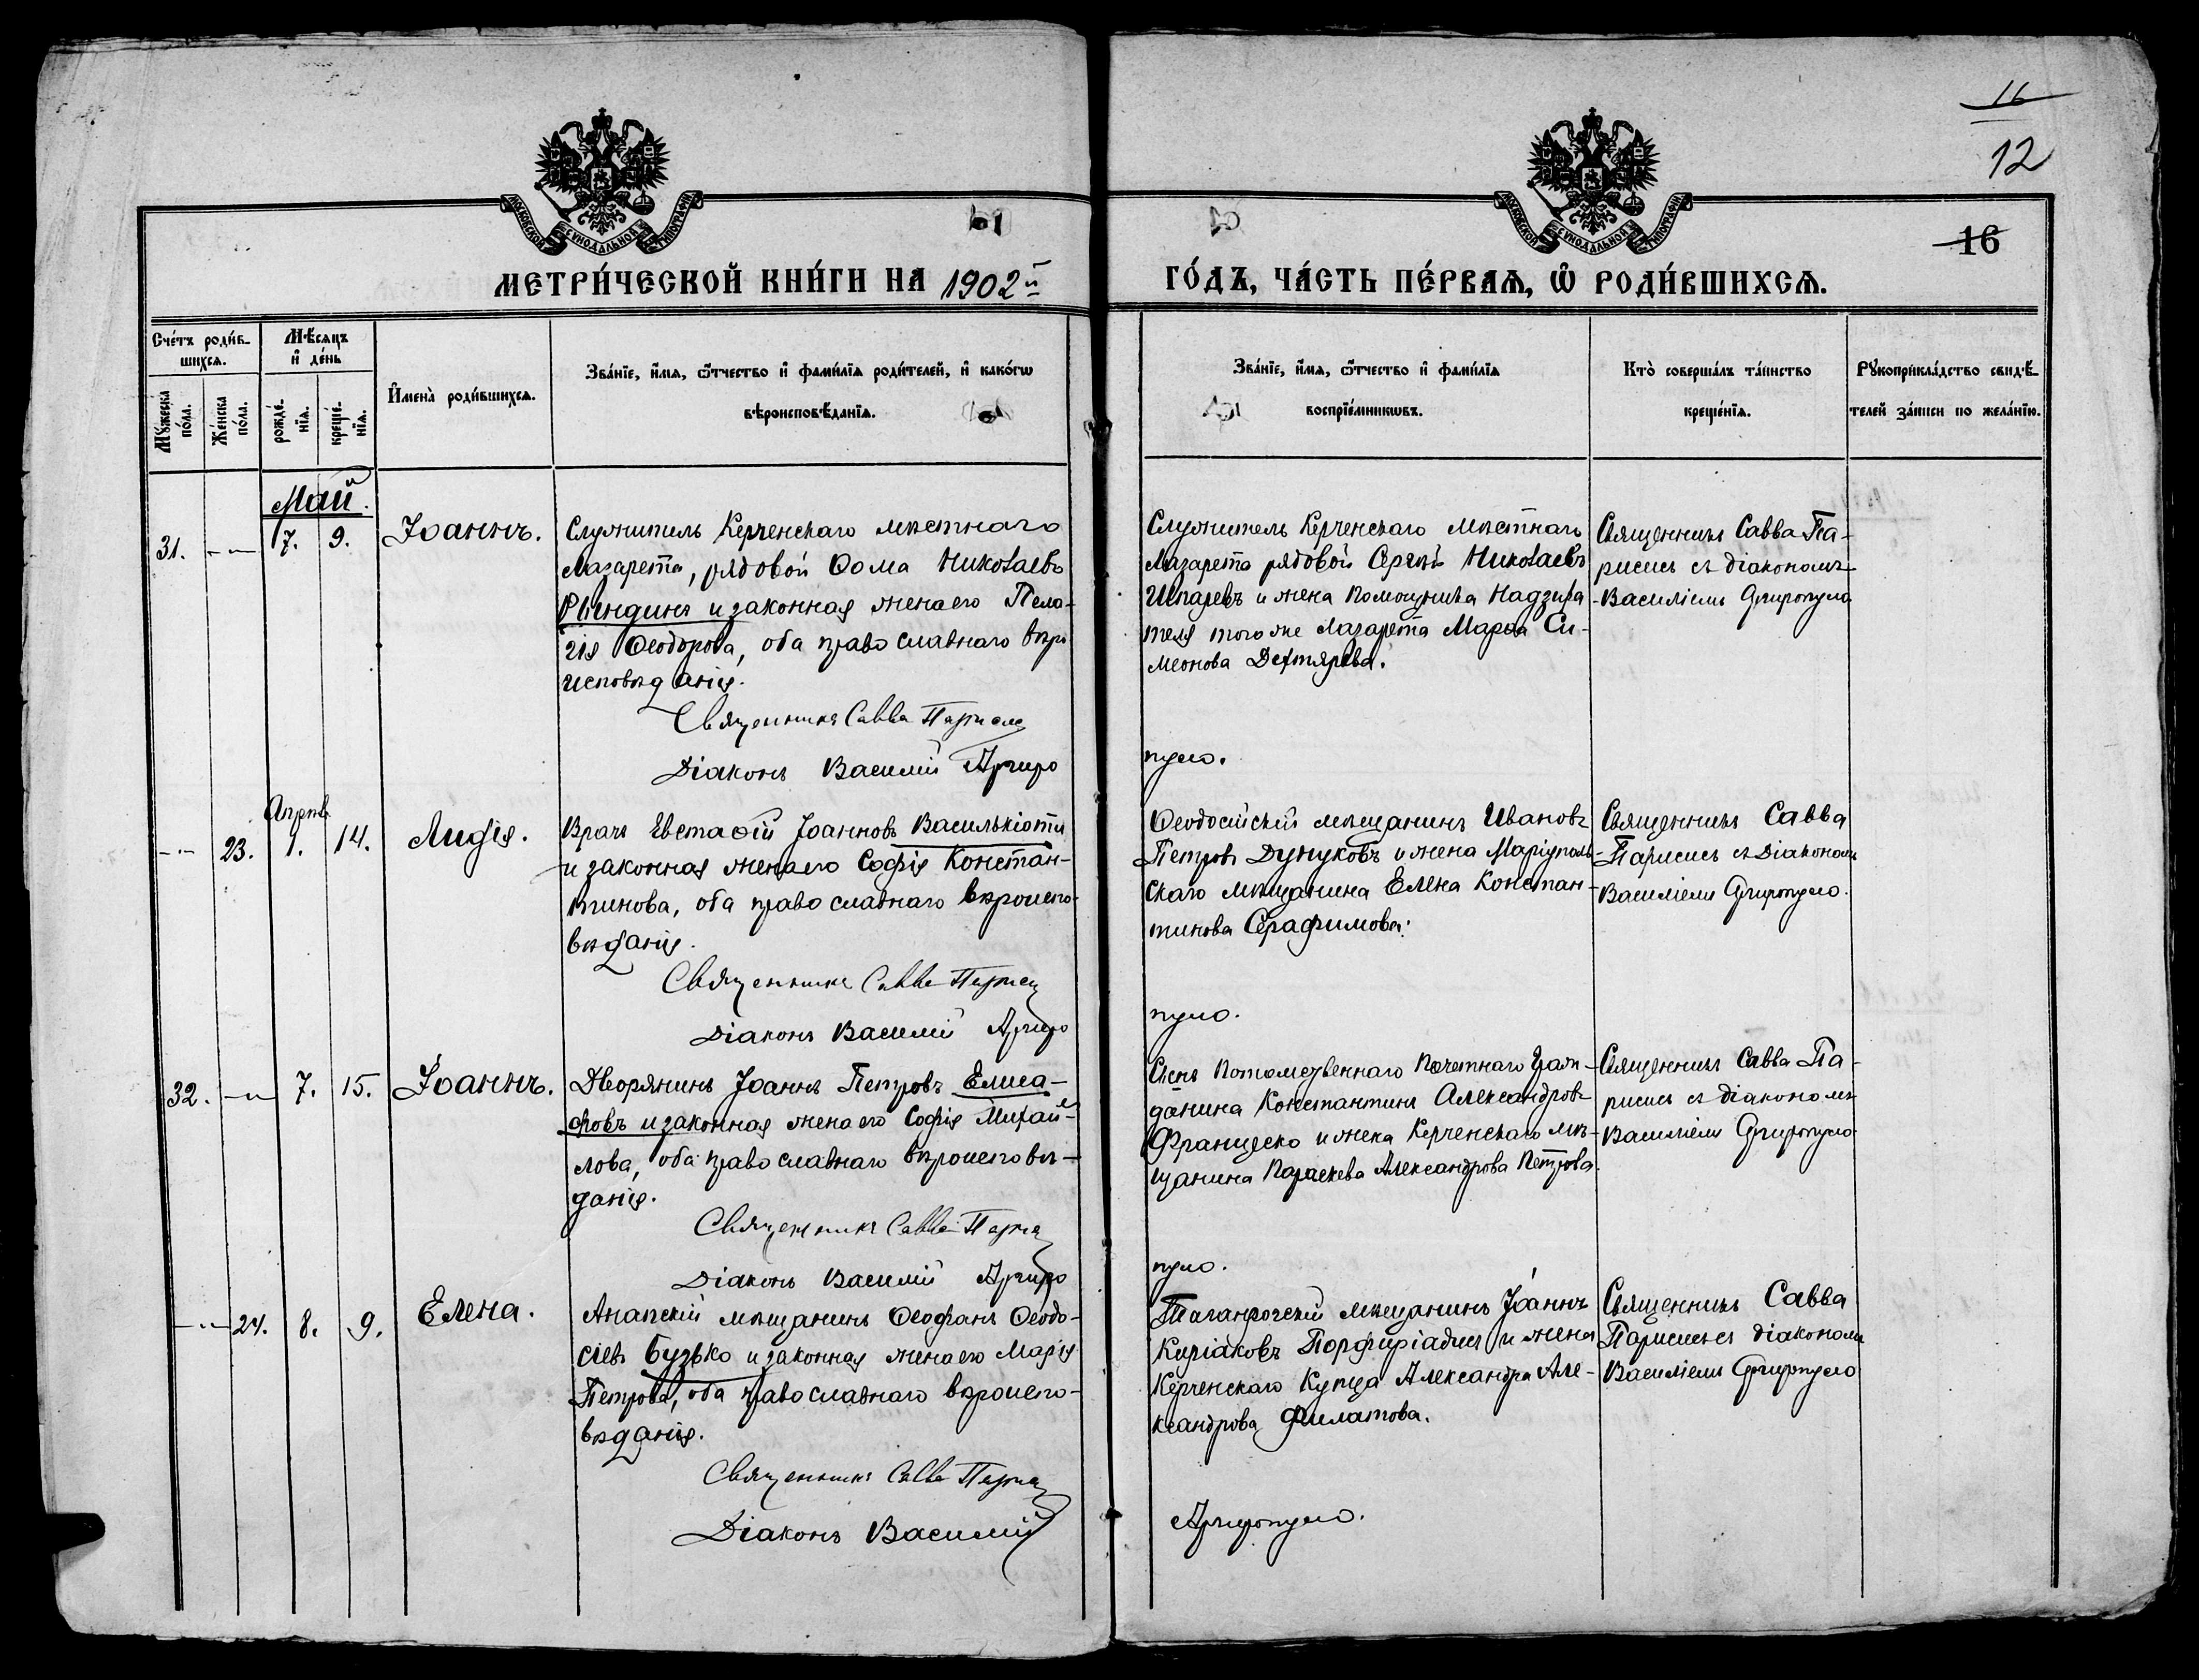 16
12
16
МОСКОВСКОЙ СѴНОДАЛЬНОЙ ТИПОГРАФІИ
МОСКОВСКОЙ СѴНОДАЛЬНОЙ ТИПОГРАФІИ
МЕТРИ́ЧЕСКОЙ КНИ́ГИ НА 1902й
ГО́ДЪ, ЧА́СТЬ ПЕ́РВАѦ, Ѡ҆ РОДИ́ВШИХСѦ.
Сче́тъ роди́в-
шихсѧ.
Мꙋ́жеска по́ла.
Же́нска по́ла.
Мѣ́сѧцъ
и҆ де́нь
рожде́-
нїѧ.
креще́-
нїѧ.
И҆мена̀ роди́вшихсѧ.
Зва́нїе, и҆́мѧ, ѻ҆́тчество и҆ фами́лїѧ роди́телей, и҆ како́гѡ
вѣроисповѣ́данїѧ.
Зва́нїе, и҆́мѧ, ѻ҆́тчество и҆ фами́лїѧ
воспрїе́мникѡвъ.
Кто̀ соверша́лъ та́инство
креще́нїѧ.
Рꙋкоприкла́дство свидѣ́-
телей за́писи по жела́нїю.
Май.
31.
7.
9.
Іоаннъ.
Служитель Керченскаго мѣстнаго
лазарета, рядовой Ѳома Николаевъ
и законная жена его Пела-
гія Ѳеодорова, оба православнаго вѣро
исповѣданія.
Священникъ Савва Парисис
Діаконъ Василій Аргиро
Служитель Керченскаго мѣстнаго
лазарета рядовой Сергѣй Николаевъ
и жена помощника надзира
теля того же лазарета Марѳа Си-
меонова Дехтярева.
пуло.
Священникъ Савва Па-
рисисъ съ діакономъ
Василіемъ Аргиропуло
Апрѣль
23.
1.
14.
Лидія.
Врачъ Евстаѳій Іоанновъ Василькіоти
и законная жена его Софія Констан-
тинова, оба православнаго вѣроиспо-
вѣданія.
Священникъ Савва Парисис
Діаконъ Василій Аргиро
Ѳеодосійскій мѣщанинъ Ивановъ
Петровъ Дунуковъ и жена Маріуполь-
скаго мѣщанина Елена Констан-
тинова Серафимова.
пуло.
Священникъ Савва
Парисисъ съ Діакономъ
Василіемъ Аргиропуло.
32.
7.
15.
Іоаннъ.
Дворянинъ Іоаннъ Петровъ Елиса-
фовъ и законная жена его Софія Михай-
лова, оба православнаго вѣроисповѣ-
данія.
Священникъ Савва Парисис
Діаконъ Василій Аргиро
Сынъ Потомственнаго Почетнаго Граж-
данина Константинъ Александровъ
Францеско и жена Керченскаго мѣ-
щанина Параскева Александрова Петрова.
пуло.
Священникъ Савва Па-
рисисъ съ діакономъ
Василіемъ Аргиропуло
24.
8.
9.
Елена.
Анапскій мѣщанинъ Ѳеофанъ Ѳеодо-
сіевъ Бузько и законная жена его Марія
Петрова, оба православнаго вѣроиспо-
вѣданія.
Священникъ Савва Парисис
Діаконъ Василій
Таганрогскій мѣщанинъ Іоаннъ
Киріаковъ Порфиріадисъ и жена
Керченскаго Купца Александра Але-
ксандрова Филатова.
Аргиропуло.
Священникъ Савва
Парисисъ съ діакономъ
Василіемъ Аргиропуло